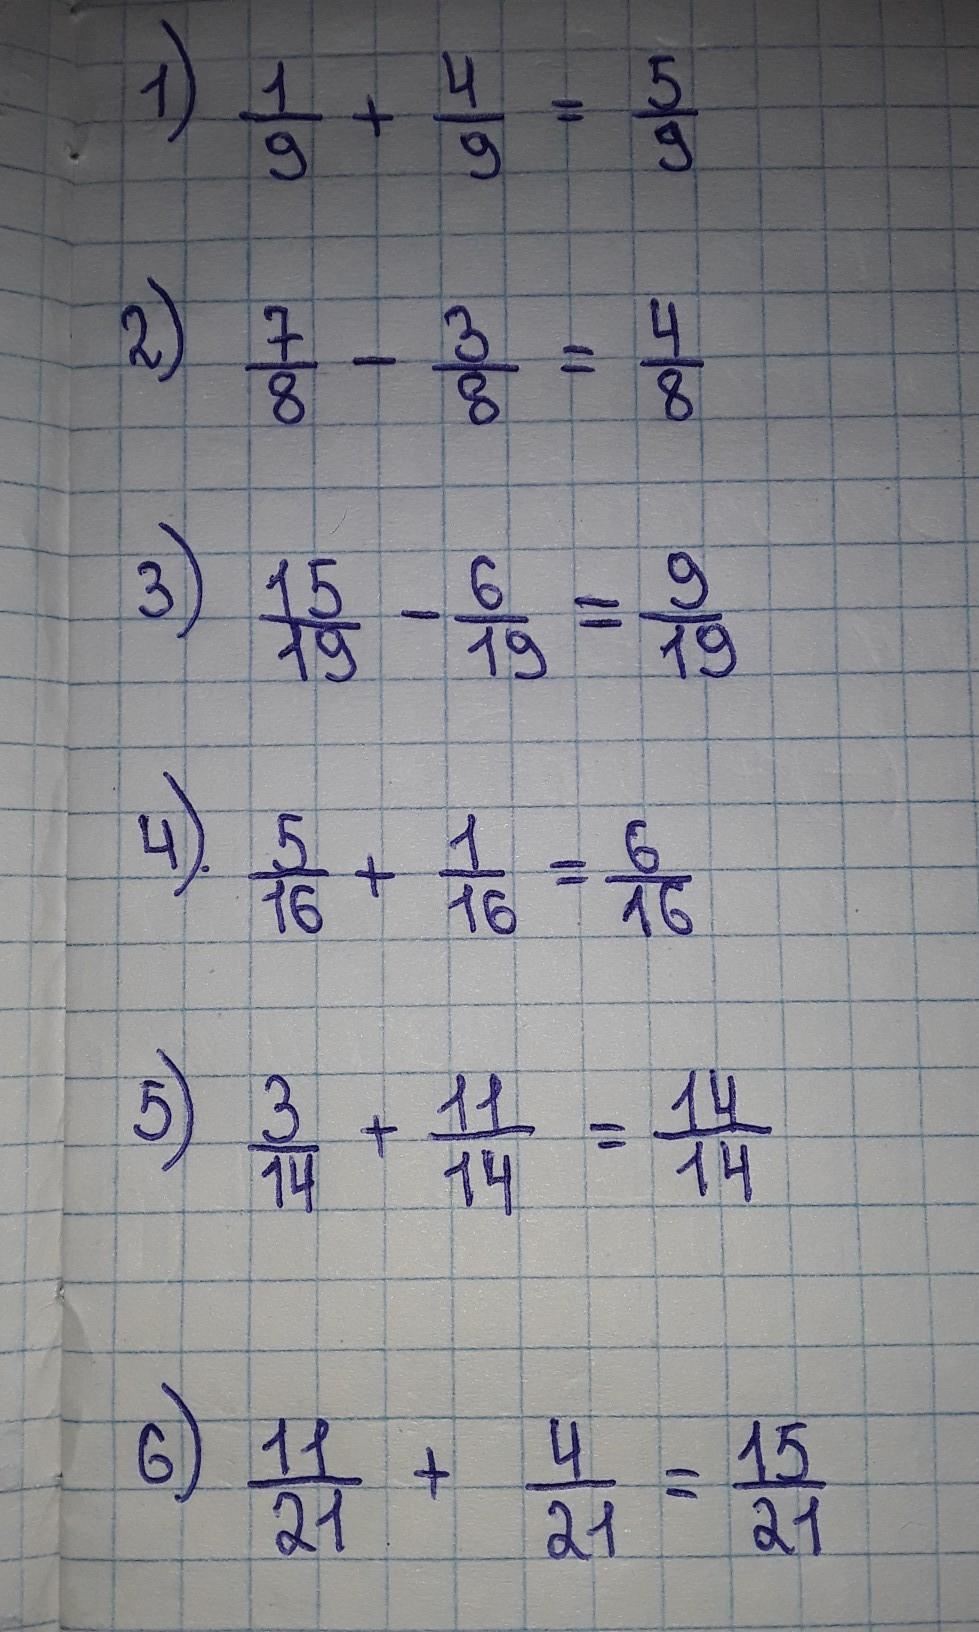 1) 1/9 + 4/9 = 5/9
2) 7/8 - 3/8 = 4/8
3) 15/19 - 6/19 = 9/19
4). 5/16 + 1/16 = 6/16
5) 3/14 + 11/14 = 14/14
6) 11/21 + 4/21 = 15/21